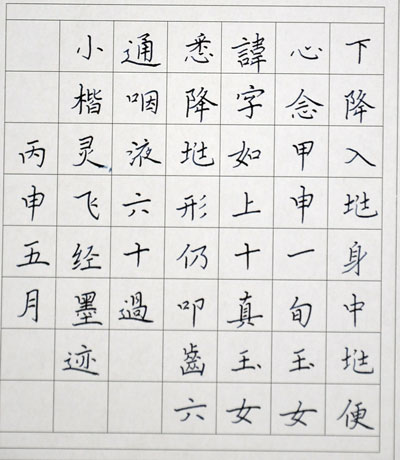 下降入兆身中兆便
心念甲申一旬玉女
諱字如上十真玉女
悉降兆形仍叩齒六
通咽液六十過
小楷灵飞经墨迹
丙申五月